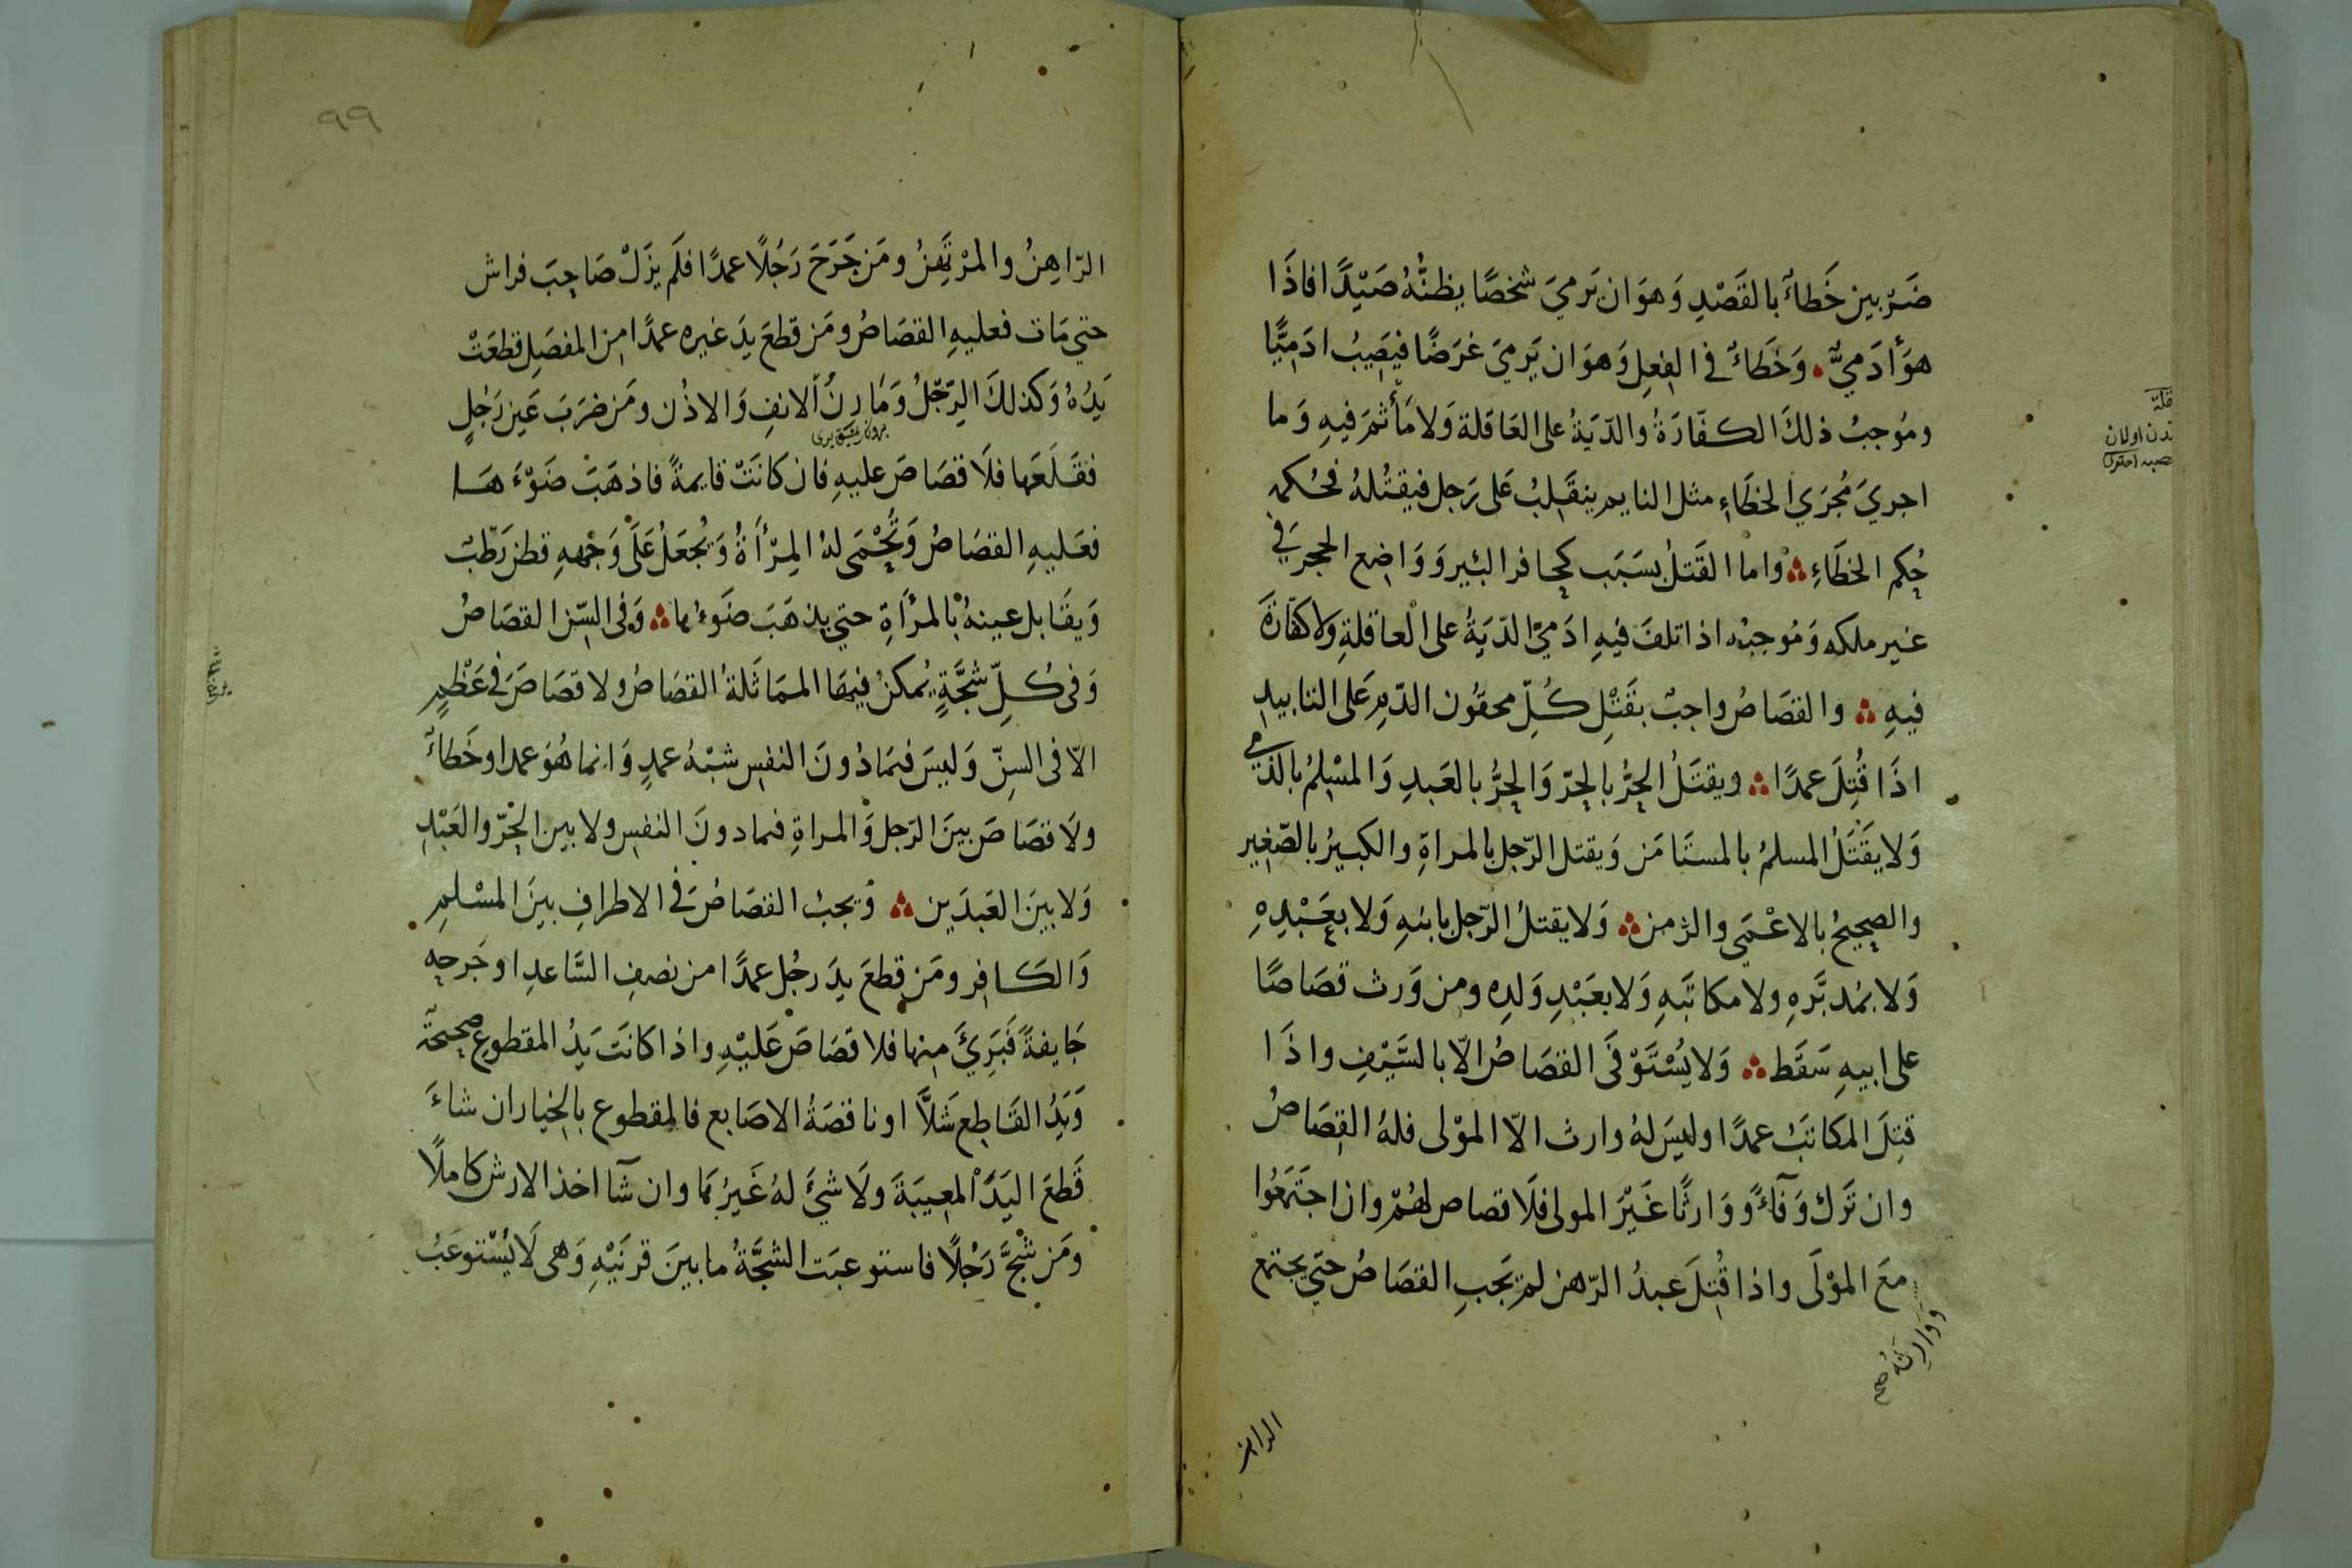 ضَرْبين خَطاءٌ بالقَصْدِ وَهوَ ان يَرميَ شخصًا يظنُّهُ صَيْدًا فاذَا
هوَ أدَميٌّ وَخَطاءٌ في الفِعلِ وَهوَ ان يَرميَ غرَضًا فيُصَيبُ ادَمِيًّا
ومُوجبُ ذلكَ الكفّارَةُ والدّيَةُ على العَاقلة وَلا مَأثمَ فيهِ وَما
اجريَ مُجرَى الخطَاءِ مثل النايم ينقَلِبُ عَلى رَجل فيقتُلهُ فحُكمه
حُكم الخطَاءِ واما القَتلُ بسَبَب كحافر البئير وَوَاضع الحجرَ في
غير ملكه وَمُوجبُه اذا تلفَ فيهِ ادَميٌ الدّيَةُ على العاقلةِ ولا كفّارَةَ
فيهِ والقصَاصُ واجبٌ بقَتْلِ كُلّ محقُون الدّمِ عَلى التابيدِ
اذَا قُتِلَ عمدًا ويقتَلُ الحرُّ بالحرّ وَالحرُّ بالعَبدِ وَالمسْلِمُ بالذّمي
وَلا يقتَلُ المسلمُ بالمستَامَن وَيقتل الرّجل بالمراةِ والكبيرُ بالصّغِير
والصحِيحُ بالاعْمَى والزمن وَلا يقتلُ الرّجل بابنهِ وَلا بعَبْدِهِ
وَلا بمُدبَّرهِ ولا مكاتَبهِ وَلا بعَبْدِ وَلدِه ومن وَرث قصَاصًا
على ابيهِ سَقَط وَلا يُسْتَوْفَى القصَاصُ الّا بالسَّيفِ واذَا
قتِلَ المكاتَبُ عمدًا وليسَ لهُ وارث الّا الموْلى فلهُ القصَاصُ
وان تَرك وَفآءً ووَارثًا غَيْرَ المولى فلَا قصاص لهُمْ وان اجتمَعُوا
معَ الموْلَى واذا قُتِلَ عبدُ الرّهن لم يَجبِ القصَاصُ حتّي يجتمع
وَوَارِثُهُ صح
الراهن
تدن اولان
٩٩
الرّاهِنُ والمرْتَهِنُ ومَن جَرَحَ رَجُلًا عمدًا فلَم يزَلْ صَاحِبَ فراش
حتي مَات فعليهِ القصَاصُ ومَن قطعَ يدَ غيره عمدًا من المفصَلِ قطعَتْ
يَدُهُ وَكذلكَ الرّجْلُ وَمَارِنُ الانفِ وَالاذُن ومَن ضرَبَ عَين رَجُلٍ
فقَلَعَها فلَا قصَاصَ عليهِ فان كانَتْ قايمةً فاذهَبَ ضَوْءَ هَا
فعَليهِ القصَاصُ وَتُحْمَى لهُ المِرْأةُ وَيُجعَلُ عَلَى وَجْههِ قطن رَطْبٌ
وَيقَابل عينهُ بالمرْأةِ حتي يذهَبَ ضَوءُها وَفى السّن القصَاصُ
وَفى كُلِّ شجَّةٍ يُمكنُ فيهَا الممَاثَلةُ القصَاصُ ولا قصَاصَ في عَظْمٍ
الّا فى السِنّ وَليسَ فيمَا دُونَ النفس شبْهُ عمدٍ وَانما هُوَ عمد او خَطاءٌ
ولَا قصَاصَ بينَ الرّجل وَالمراةِ فيما دونَ النفس ولا بين الحُرّ والعَبْدِ
وَلا بيَنَ العَبدَين وَيجبُ القصَاصُ في الاطرافِ بينَ المسْلمِ
وَالكافِر ومَن قطعَ يدَ رجُل عمدًا من نصفِ السَّاعدِ او جَرحه
جَايفةً فَبَرئَ منها فلا قصَاصَ عَليْهِ واذا كانَت يَدُ المقطوع صحيحَةً
وَيَدُ القَاطِع شَلَّا او ناقصَةُ الاصَابع فالمقطوع بالخيار ان شاءَ
قَطعَ اليَدَ المعِيبَةَ ولَا شيَْ لهُ غَيرُهَا وان شآ اخذ الارش كاملًا
ومَن شجَّ رَجُلًا فاستوعبَت الشجَّةُ ما بينَ قرنَيْهِ وَهى لَا يُسْتوعَبُ